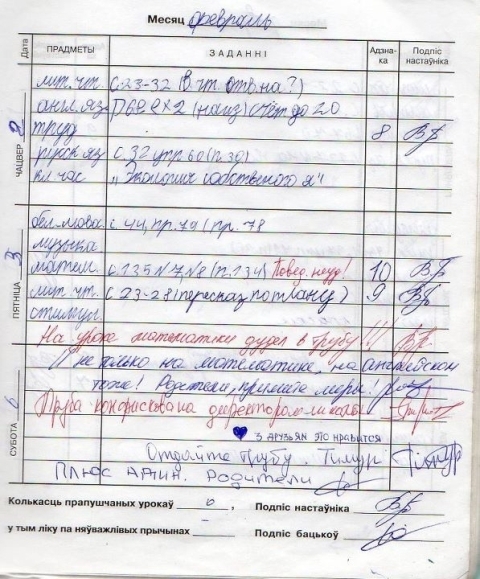 Месяц февраль
Дата ПРАДМЕТЫ ЗАДАННІ Адзна-ка Подпіс настаўніка
ЧАЦВЕР 2
лит. чт. с. 23-32 (в. чт. отв на?)
англ. яз. счёт до 20
труд 8
русск яз с. 32 упр 60 (п. 30)
кл час „Экология собственного я"
ПЯТНІЦА 3
бел. мова с. 44, пр. 79 / пр. 78
музыка
матем. с. 135 №7 №8 (п. 134) Повед. неуд! 10
лит. чт. с 23-28 (пересказ по плану) 9
На уроке математики дудел в трубу!!!
И не только на математике, на английском
тоже! Родители, примите меры!
Труба конфискована директором школы
СУБОТА
3 друзьям это нравится
Отдайте трубу. Тимур
Плюс один. Родители
Колькасць прапушчаных урокаў , Подпіс настаўніка
у тым ліку па няўважлівых прычынах Подпіс бацькоў